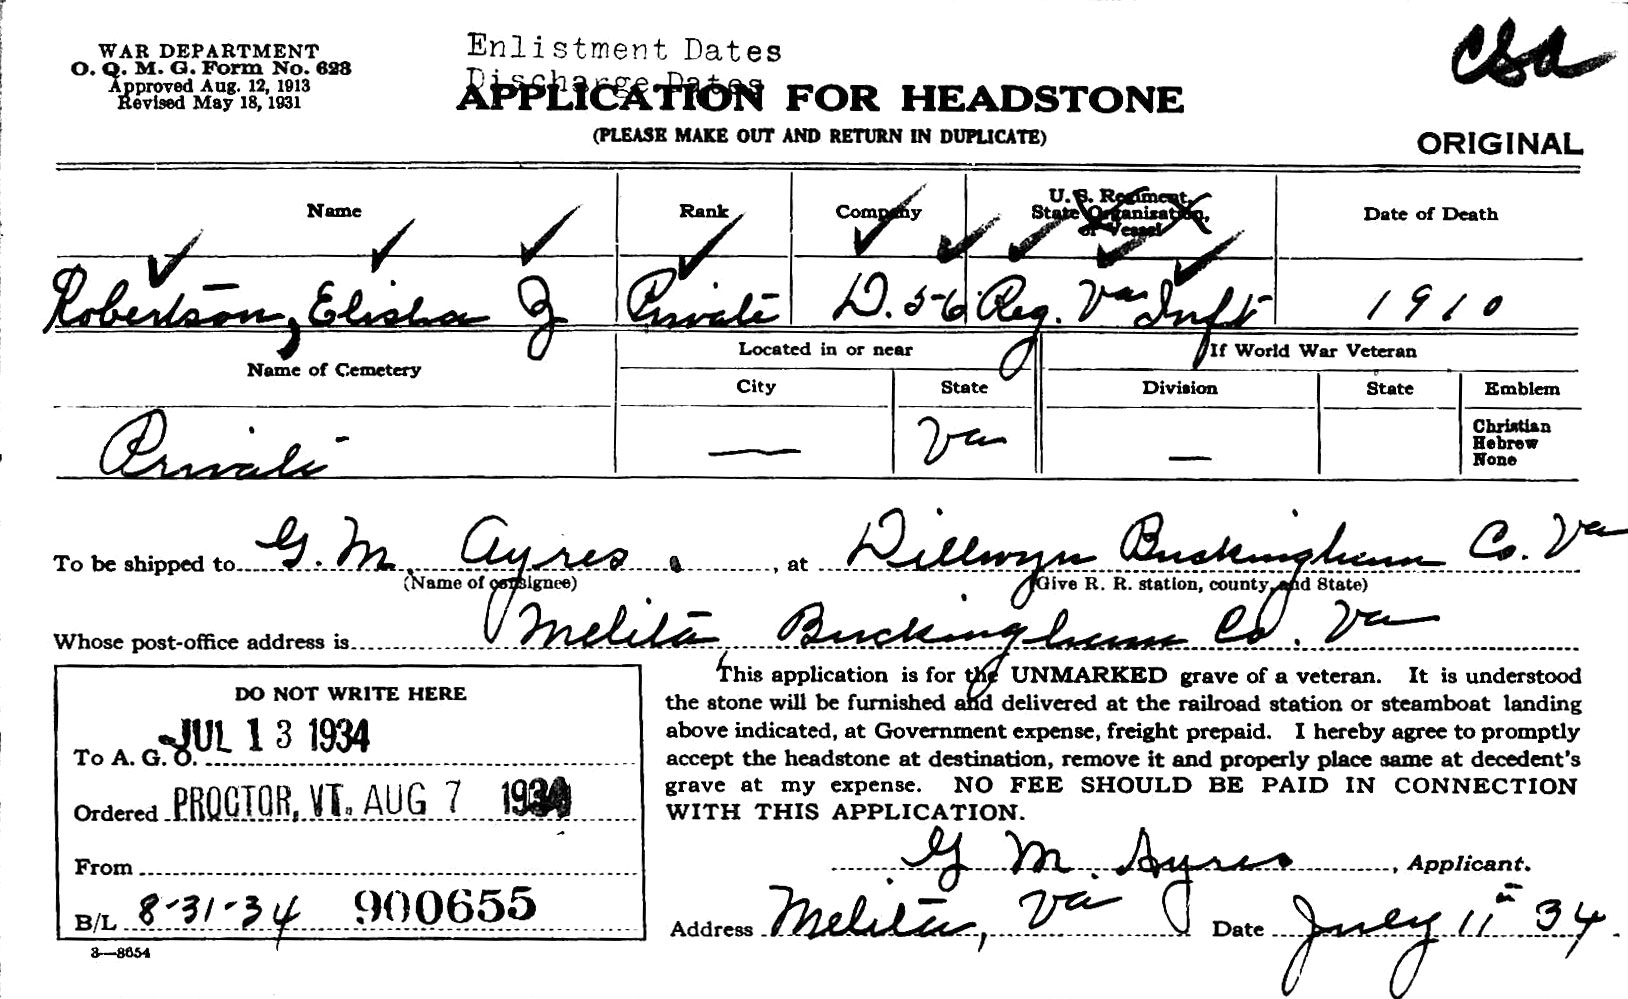 WAR DEPARTMENT
O. Q. M. G. Form No. 623
Approved Aug. 12, 1913
Revised May 18, 1931
Enlistment Dates
Discharge Dates
CSA
APPLICATION FOR HEADSTONE
(PLEASE MAKE OUT AND RETURN IN DUPLICATE)
ORIGINAL
Name Rank Company U. S. Regiment, State Organization, or Vessel Date of Death
Robertson, Elisha J Private D. 56 Reg. Va Inft 1910
Name of Cemetery Located in or near If World War Veteran
City State Division State Emblem
Private — Va — Christian
Hebrew
None
To be shipped to G. M. Ayres, at Dillwyn Buckingham Co. Va
(Name of consignee) (Give R. R. station, county, and State)
Whose post-office address is Melita Buckingham Co. Va
DO NOT WRITE HERE
To A. G. O. JUL 13 1934
Ordered PROCTOR, VT. AUG 7 1934
From
B/L 8-31-34 900655
3—8654
This application is for the UNMARKED grave of a veteran. It is understood
the stone will be furnished and delivered at the railroad station or steamboat landing
above indicated, at Government expense, freight prepaid. I hereby agree to promptly
accept the headstone at destination, remove it and properly place same at decedent's
grave at my expense. NO FEE SHOULD BE PAID IN CONNECTION
WITH THIS APPLICATION.
G M Ayres, Applicant.
Address Melita, Va Date July 11" 34.